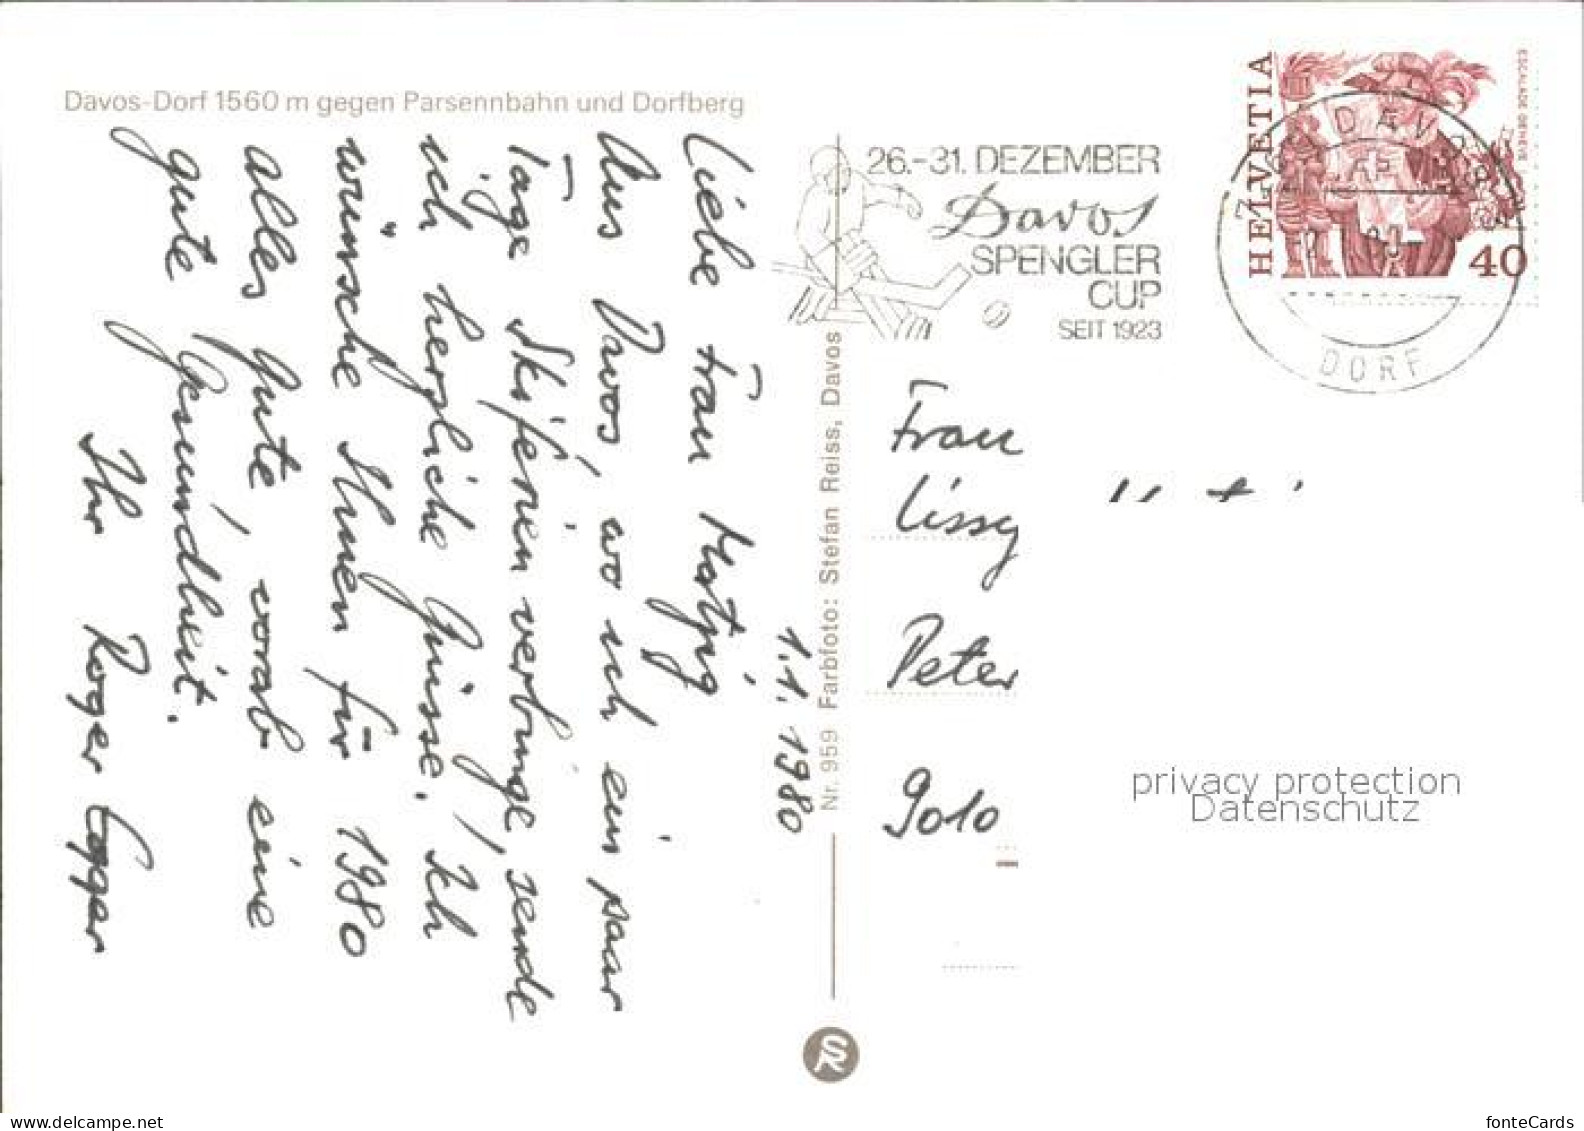 Davos-Dorf 1560 m gegen Parsennbahn und Dorfberg
1.1.1980
Liebe Frau
Aus Davos, wo ich ein paar
Tage Skiferien verbringe, sende
ich herzliche Grüsse. Ich
wünsche Ihnen für 1980
alles Gute, vorab eine
gute Gesundheit.
Ihr Roger Egger
Nr. 959 Farbfoto: Stefan Reiss, Davos
SR
26.-31. DEZEMBER
Davos
SPENGLER
CUP
SEIT 1923
HELVETIA
ESCALADE GENÈVE
40
DAVOS
DORF
Frau
Lissy
Peter
9010
privacy protection
Datenschutz
www.delcampe.net
fonteCards